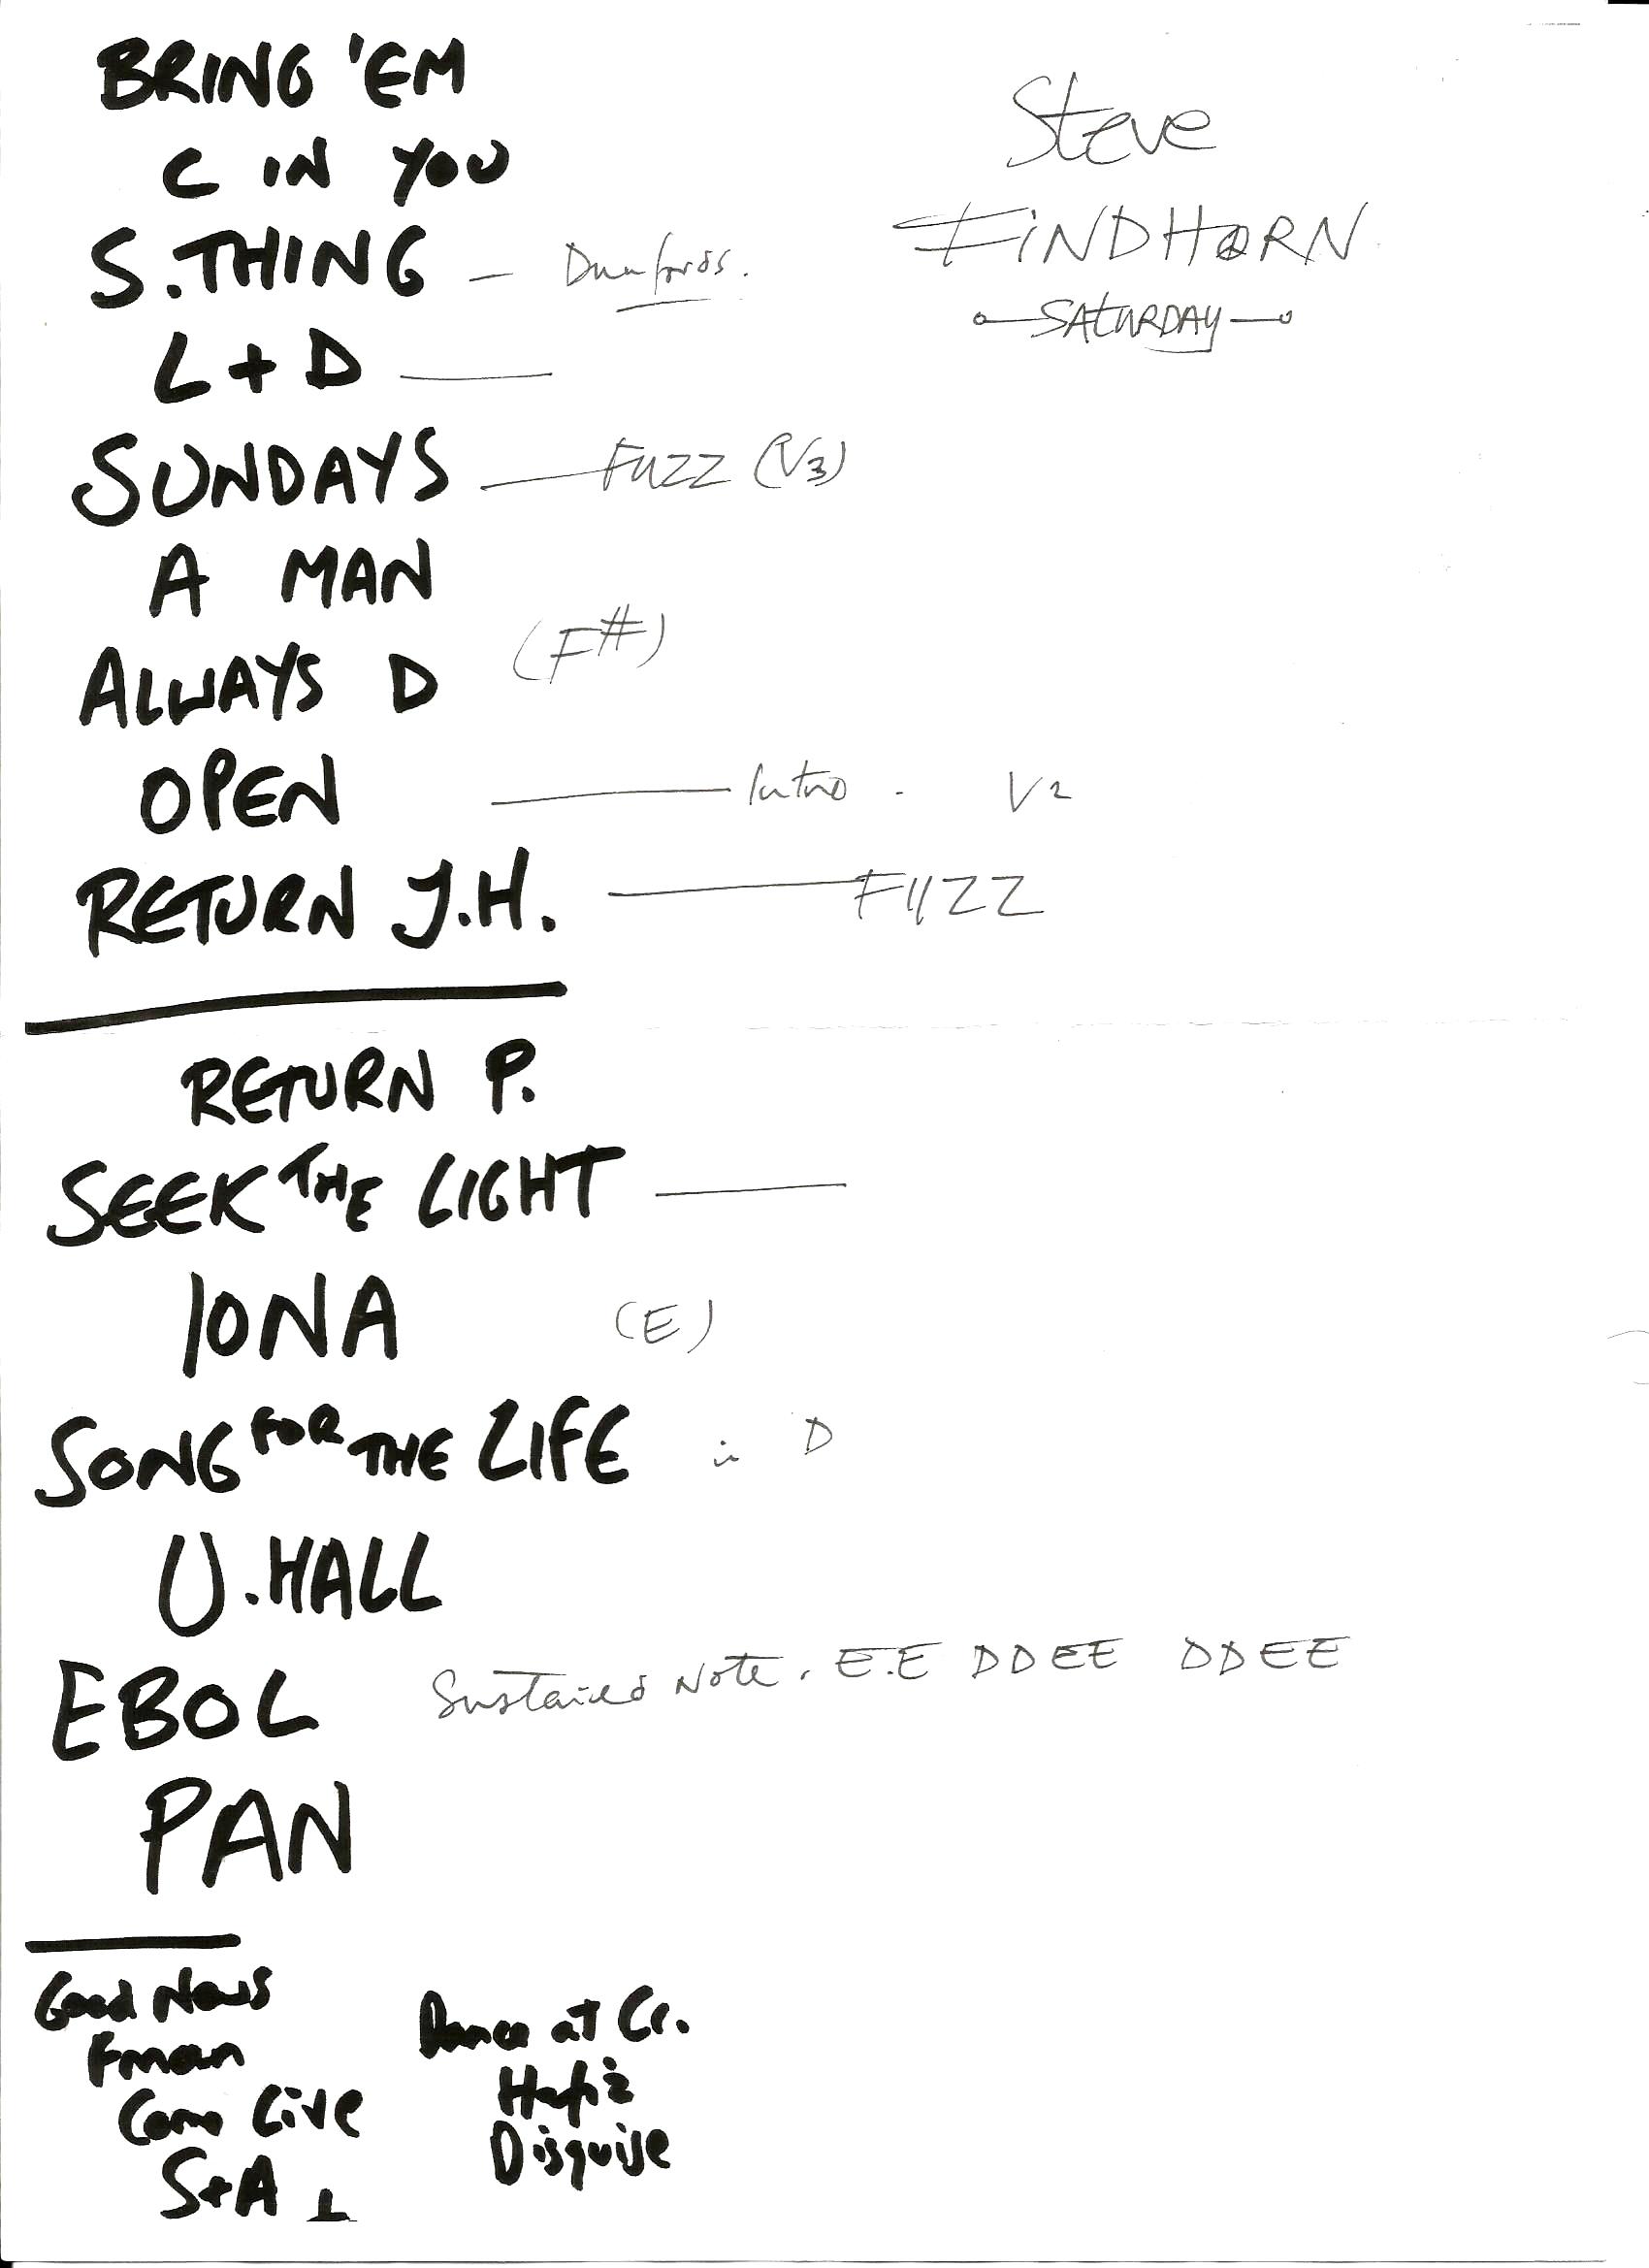 BRING 'EM
Steve
C IN YOU
FINDHORN
S. THING —
SATURDAY
L + D —
SUNDAYS — FUZZ (V3)
A MAN
ALWAYS D (F#)
OPEN — Intro - V2
RETURN J.H. — FUZZ
RETURN P.
SEEK THE LIGHT —
IONA (E)
SONG FOR THE LIFE in D
U. HALL
EBOL Sustained Note. E.E DDEE DDEE
PAN
Good News
Dance at Cr.
Fman
Hafiz
Come Live
Disguise
S+A